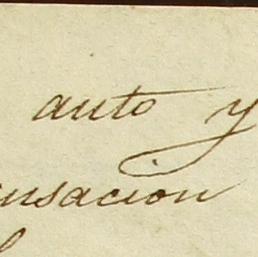 auto y
usacion